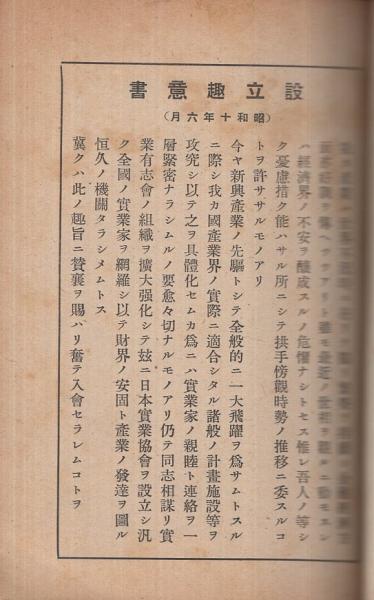 設立趣意書
(昭和十年六月)
ハ經濟界ノ不安ヲ釀成スルノ危懼ナシトセス惟レ吾人ノ等シ
ク憂慮措ク能ハサル所ニシテ拱手傍觀時勢ノ推移ニ委スルコ
トヲ許ササルモノアリ
今ヤ新興產業ノ先驅トシテ全般的ニ一大飛躍ヲ爲サムトスル
ニ際シ我カ國產業界ノ實際ニ適合シタル諸般ノ計畫施設等ヲ
攻究シ以テ之ヲ具體化セムカ爲ニハ實業家ノ親睦ト連絡ヲ一
層緊密ナラシムルノ要愈々切ナルモノアリ仍テ同志相謀リ實
業有志會ノ組織ヲ擴大强化シテ玆ニ日本實業協會ヲ設立シ汎
ク全國ノ實業家ヲ網羅シ以テ財界ノ安固ト產業ノ發達ヲ圖ル
恒久ノ機關タラシメムトス
冀クハ此ノ趣旨ニ贊襄ヲ賜ハリ奮テ入會セラレムコトヲ